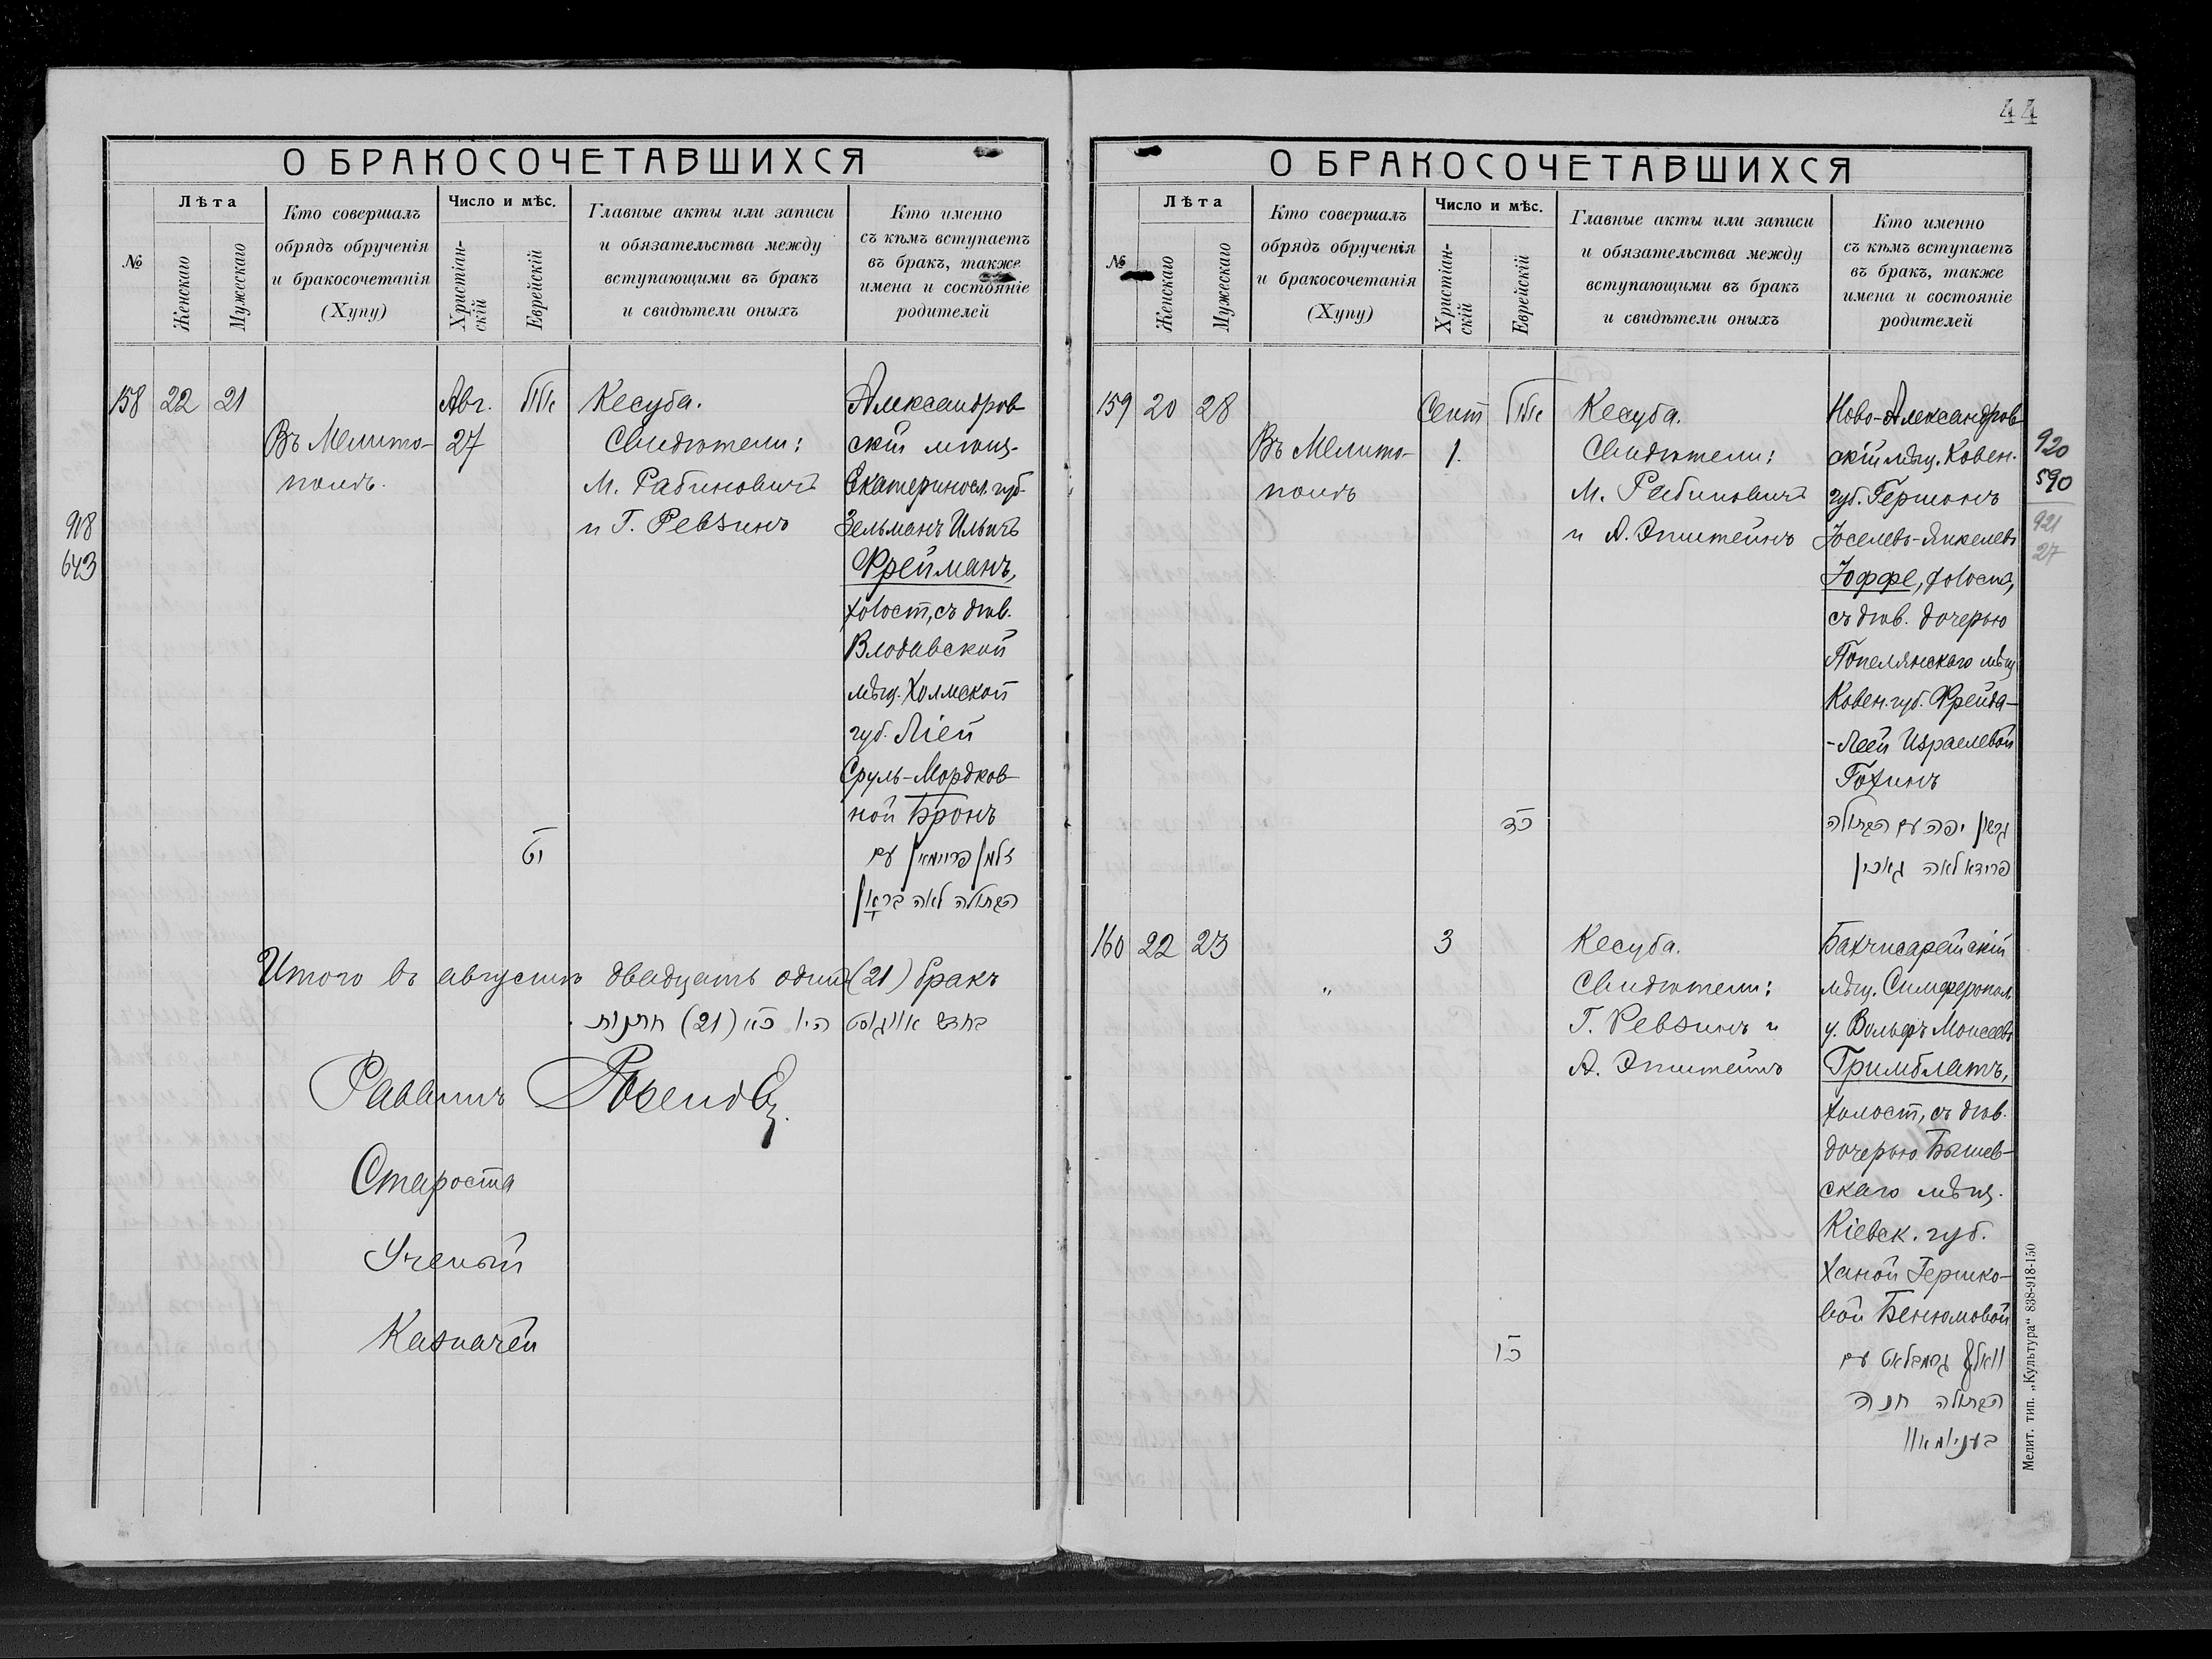 44
О БРАКОСОЧЕТАВШИХСЯ
№
Лѣта
Женскаго
Мужескаго
Кто совершалъ
обрядъ обрученія
и бракосочетанія
(Хупу)
Число и мѣс.
Христіан-
скій
Еврейскій
Главные акты или записи
и обязательства между
вступающими въ бракъ
и свидѣтели оныхъ
Кто именно
съ кѣмъ вступаетъ
въ бракъ, также
имена и состояніе
родителей
158 22 21
Въ Мелито-
полѣ.
Авг.
27
יט
Кесуба.
Свидѣтели:
М. Рабиновичъ
и Г. Ревзинъ
Александров-
скій мѣщ.
Екатериносл. губ.
Зельманъ Ильичъ
Фрейманъ,
холост, съ дѣв.
Влодавской
мѣщ. Холмской
губ. Ліей
Сруль-Мордков-
ной Бронъ
זלמן פריימאן עם
הבתולה לאה בראן
918
643
Итого въ августѣ двадцать одинъ (21) бракъ
בחדש אווגוסט היו כא (21) חתונות
Раввинъ
Староста
Ученый
Казначей
О БРАКОСОЧЕТАВШИХСЯ
№
Лѣта
Женскаго
Мужескаго
Кто совершалъ
обрядъ обрученія
и бракосочетанія
(Хупу)
Число и мѣс.
Христіан-
скій
Еврейскій
Главные акты или записи
и обязательства между
вступающими въ бракъ
и свидѣтели оныхъ
Кто именно
съ кѣмъ вступаетъ
въ бракъ, также
имена и состояніе
родителей
159 20 28
Въ Мелито-
полѣ
Сент
1.
כד
Кесуба.
Свидѣтели:
М. Рабиновичъ
и А. Эпштейнъ
Ново-Александров-
скій мѣщ. Ковен.
губ. Гершонъ
Іоселевъ-Янкелевъ
Іоффе, холоста,
съ дѣв. дочерью
Попелянскаго мѣщ.
Ковен. губ. Фрейда-
-Леей Израелевой
Гохинъ
גרשון יפה עם הבתולה
פרידא לאה גאכין
920
590
921
27
160 22 23
"
3
כו
Кесуба.
Свидѣтели:
Г. Ревзинъ и
А. Эпштейнъ
Бахчисарайскій
мѣщ. Симферопол.
у. Вольфъ Моисеевъ
Гримблатъ,
холост, съ дѣв.
дочерью Бышев-
скаго мѣщ.
Кіевск. губ.
Ханой Гершко-
вой Бенюмовой
וואלף גרימבלאט עם
הבתולה חנה
בענימאוו
Мелит. тип. „Культура“ 838-918-150